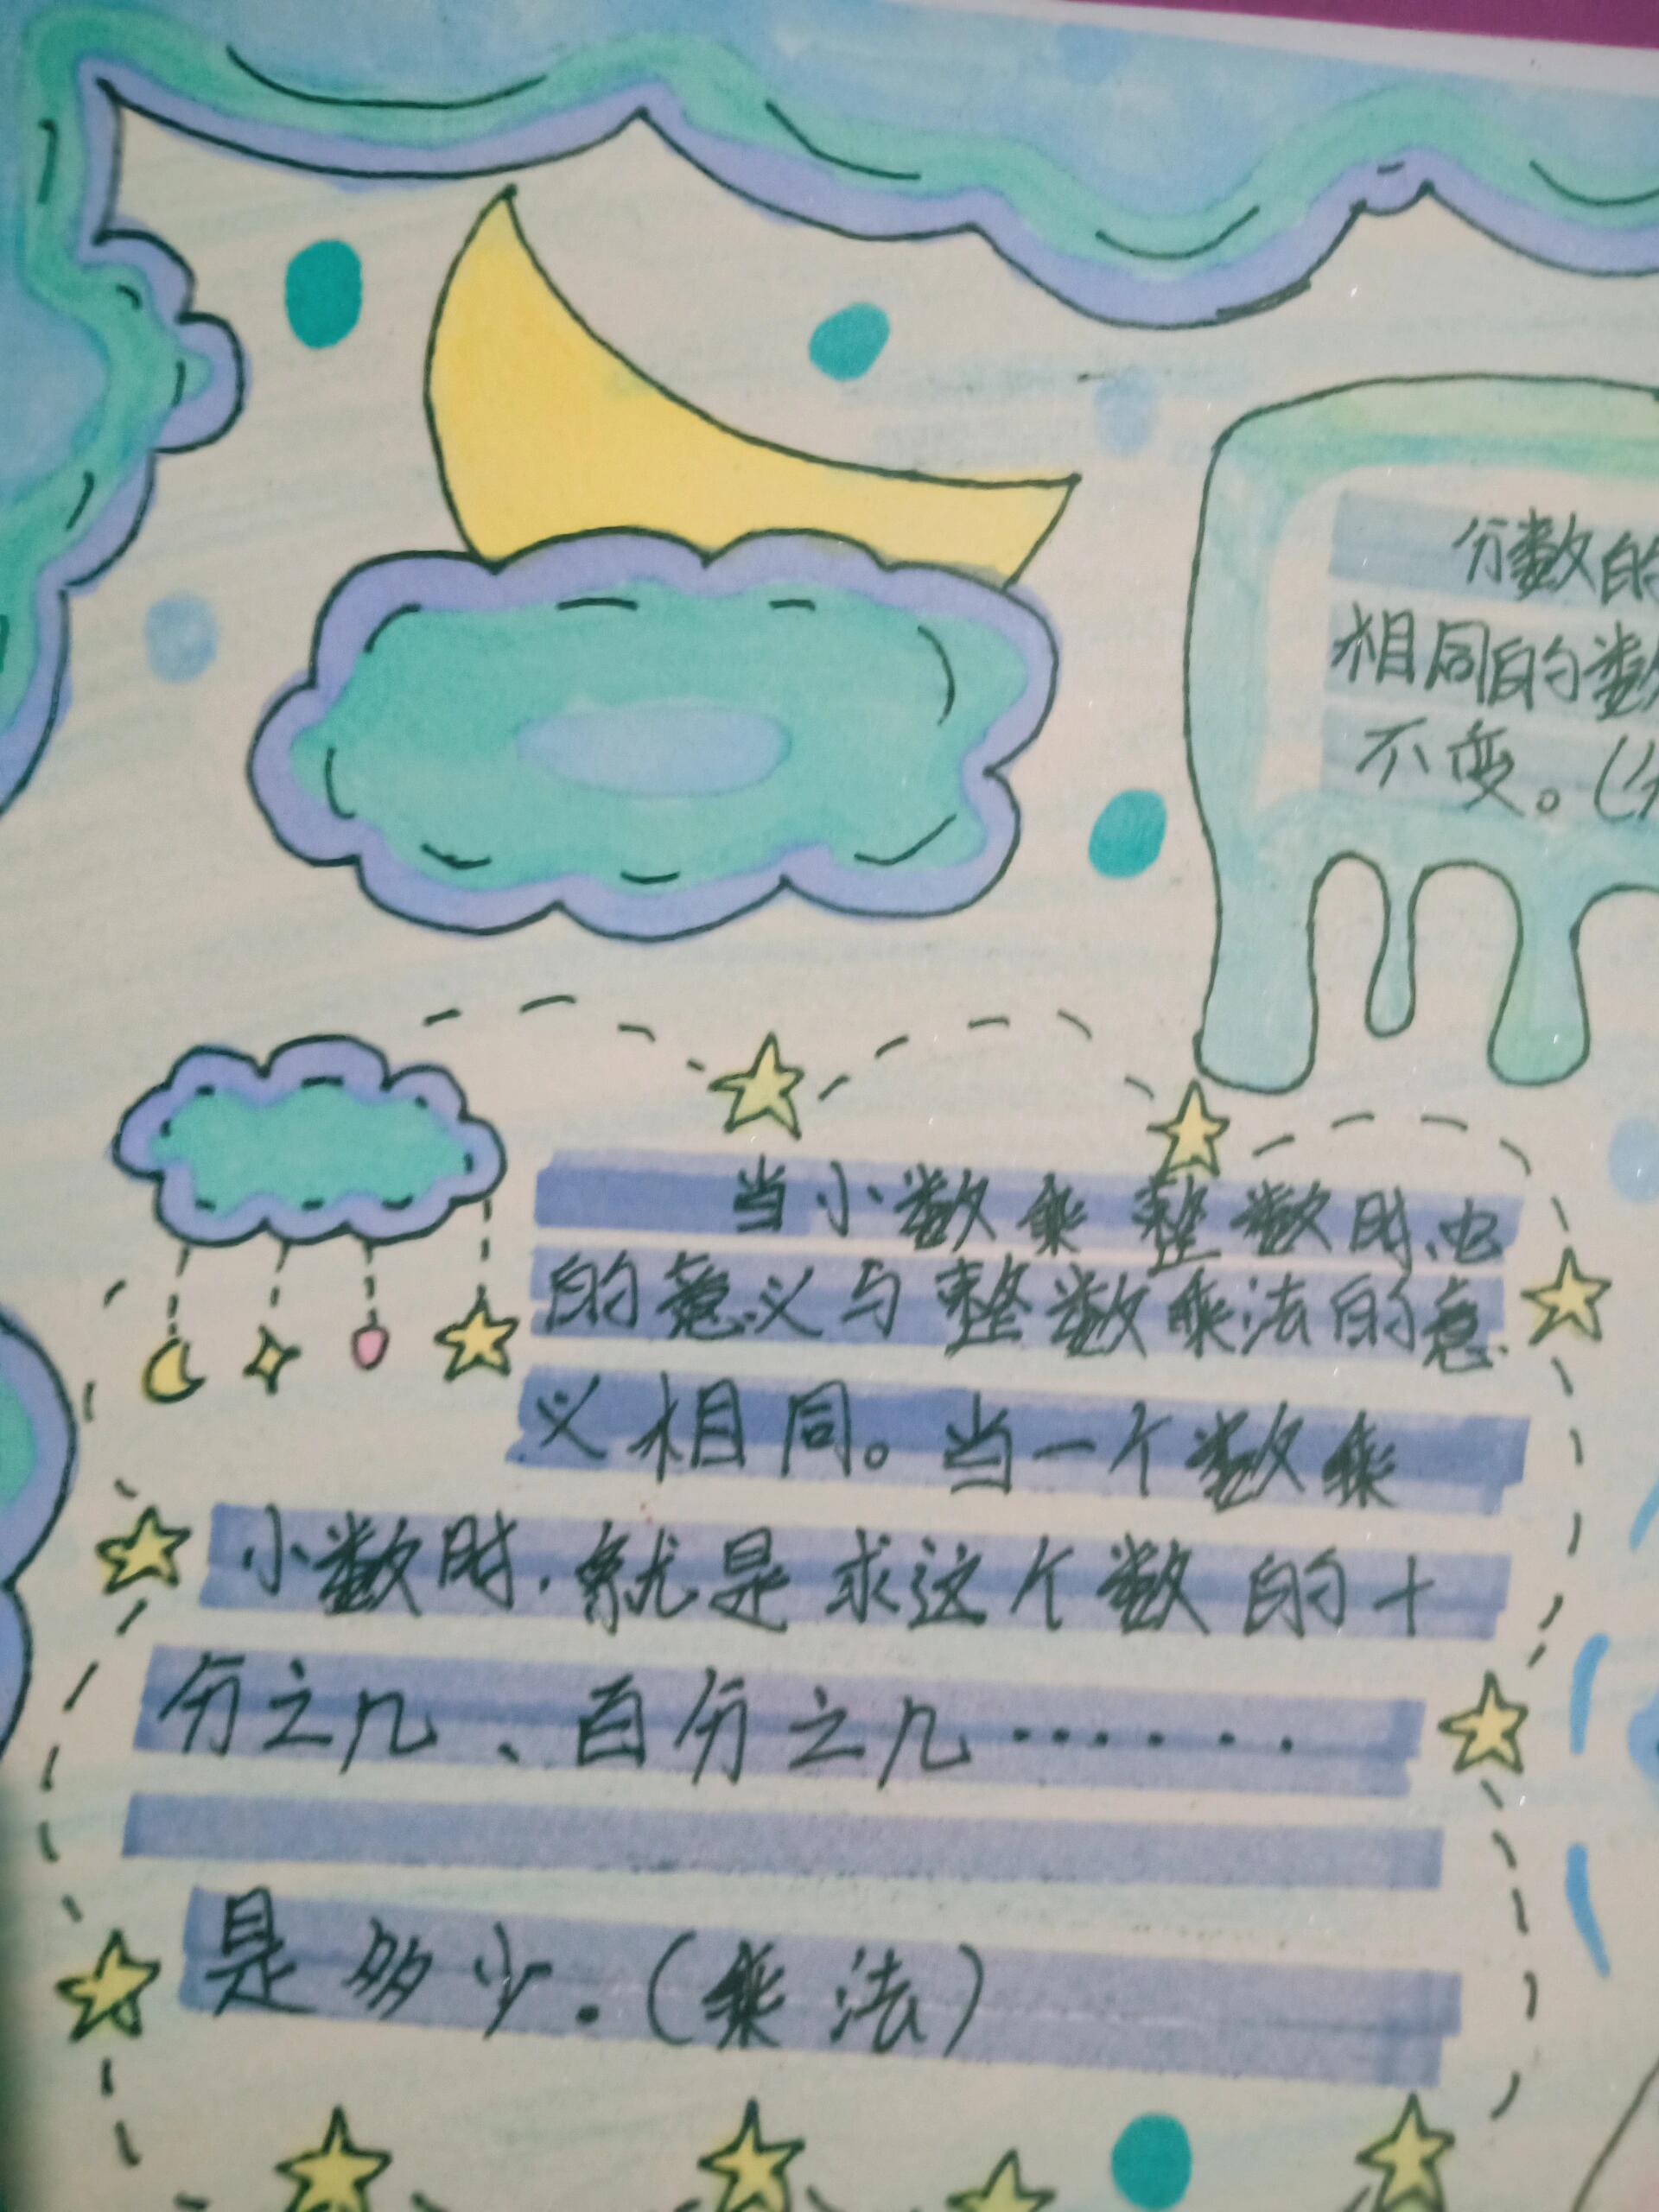 分数的
相同的数
不变。(分
当小数乘整数时,它
的意义与整数乘法的意
义相同。当一个数乘
小数时,就是求这个数的十
分之几、百分之几······
是多少.(乘法)